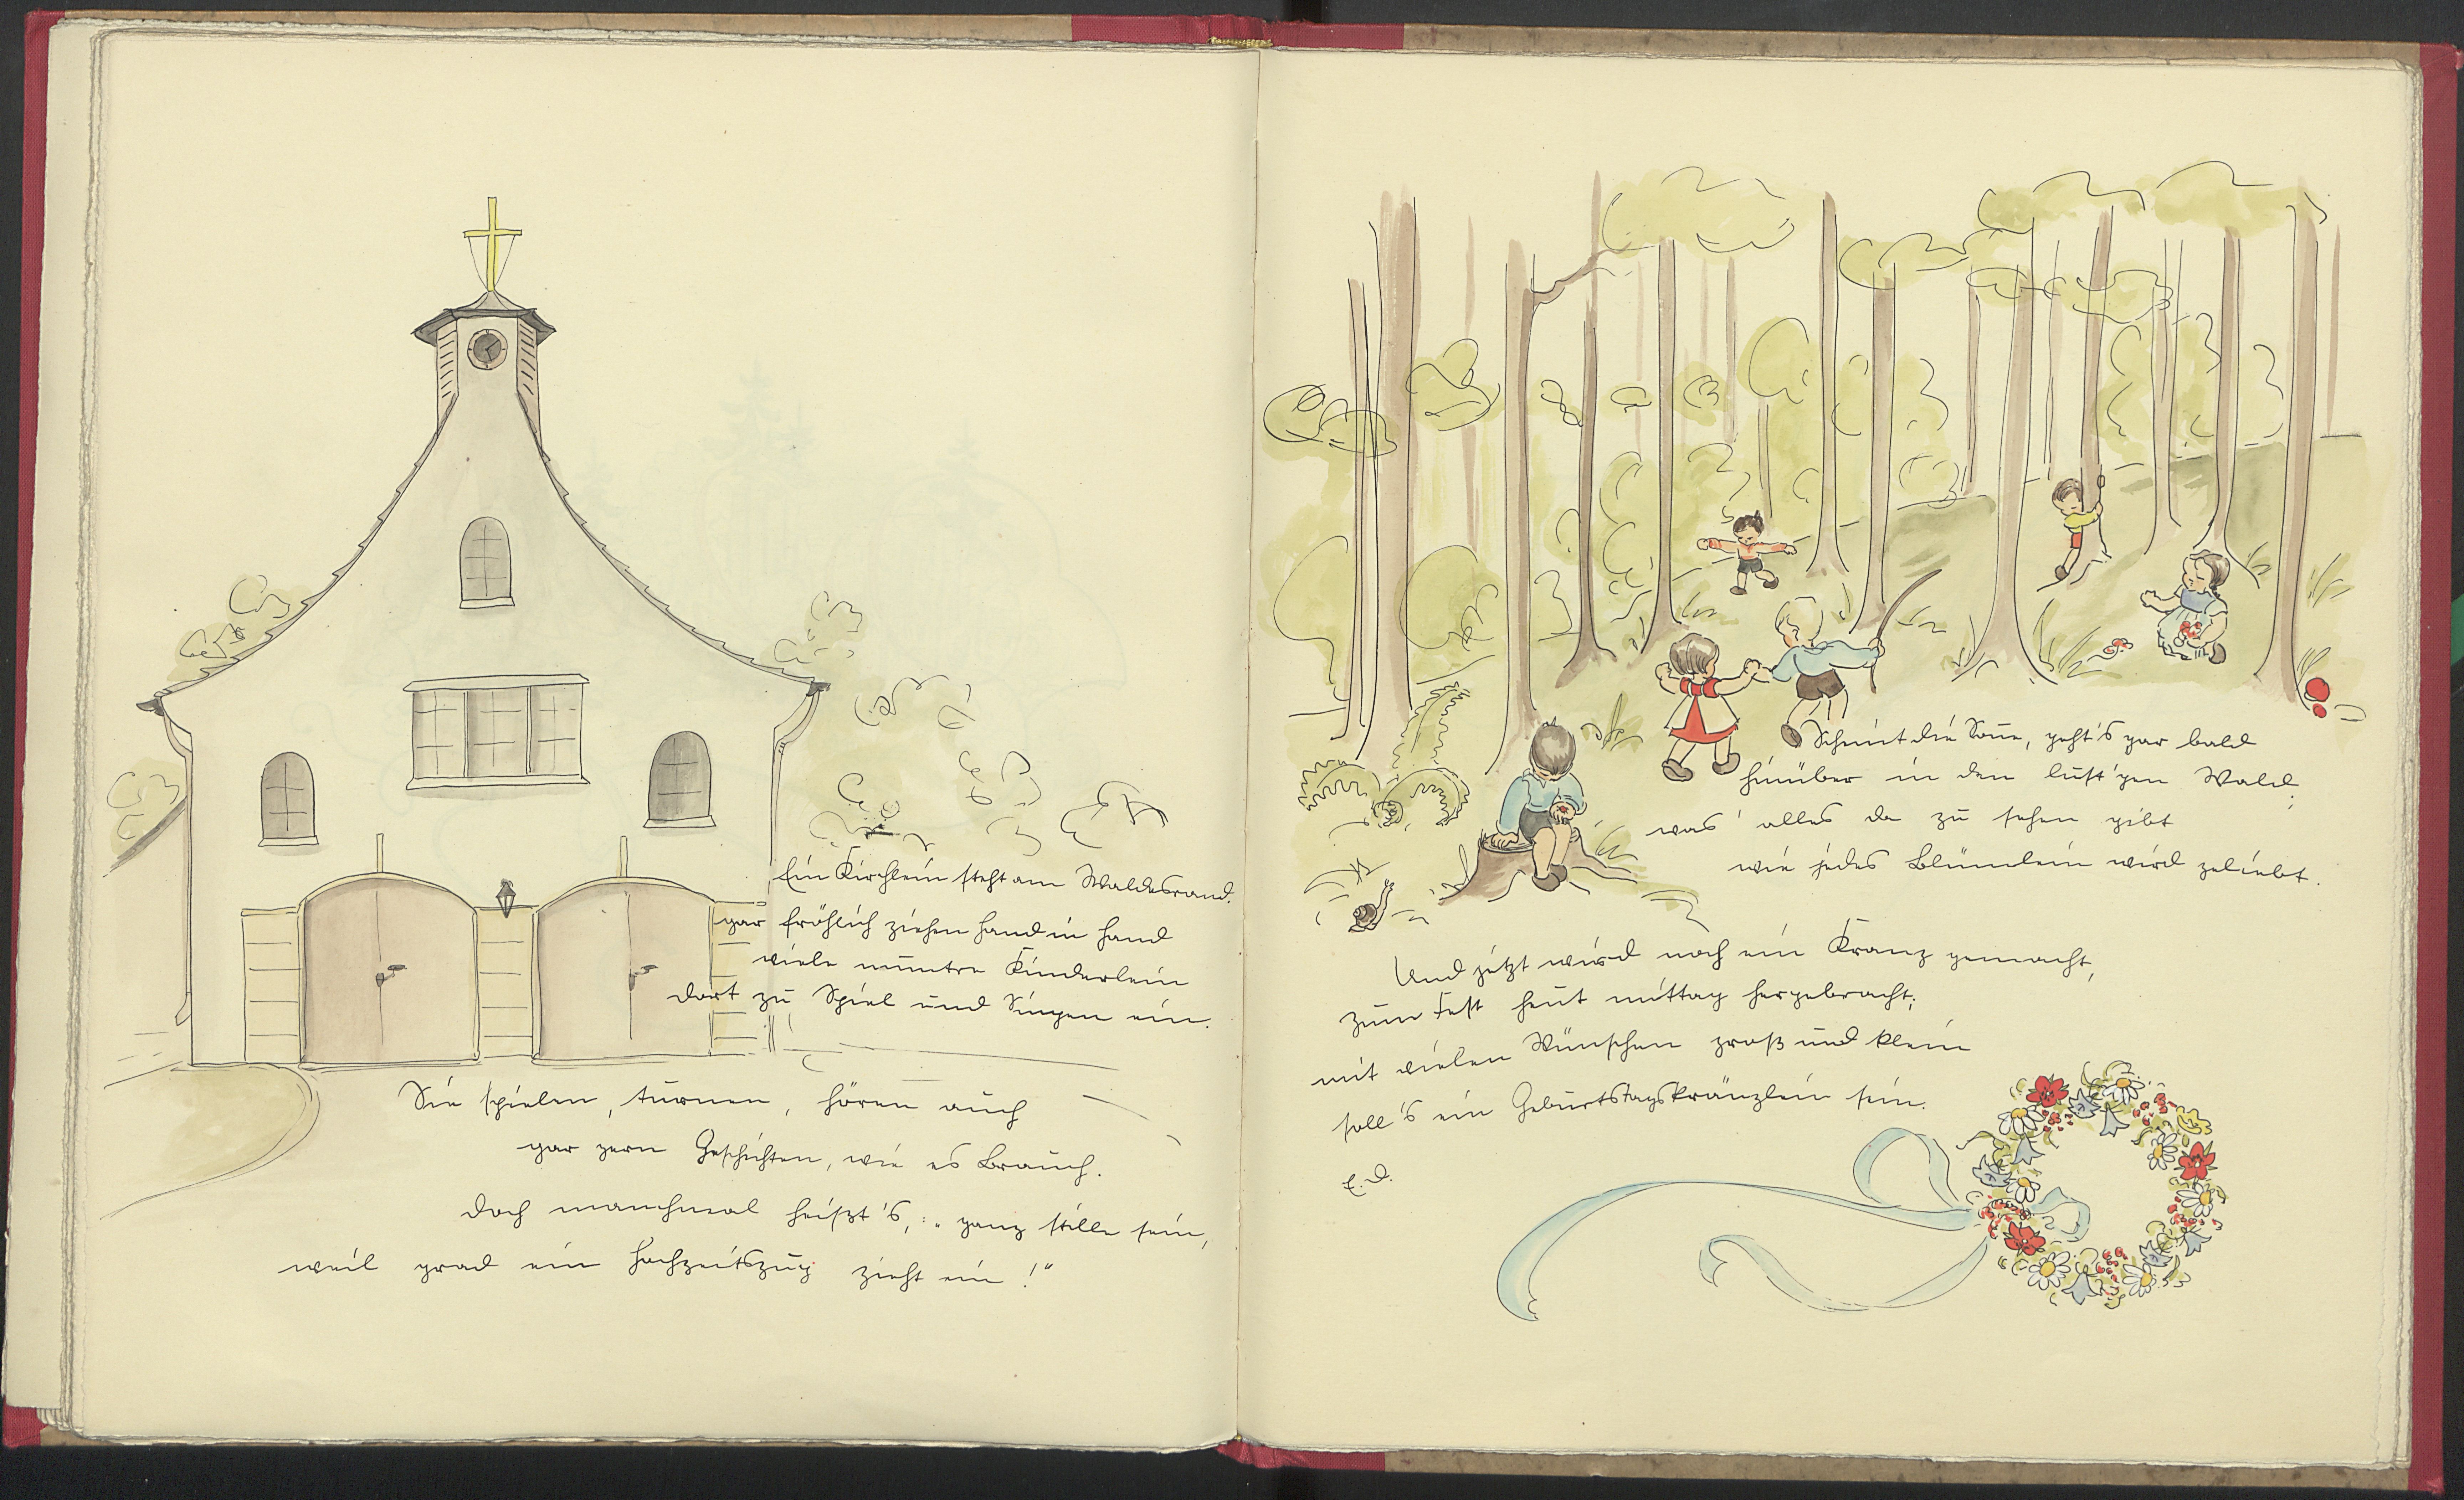 Ein Kirchlein steht am Waldesrand.
gar fröhlich ziehen Hand in Hand
viele muntre Kinderlein
dort zu Spiel und Singen ein.
Sie spielen, turnen, hören auch
gar gern Geschichten, wie es Brauch.
Doch manchmal heißt's,: „ganz stille sein,
weil grad ein Hochzeitszug zieht ein!"
Scheint die Sonne, geht's gar bald
hinüber in den lust'gen Wald;
was' alles da zu sehen gibt
wie jedes Blümlein wird geliebt.
Und jetzt wird noch ein Kranz gemacht,
zum Fest heut mittag hergebracht;
mit vielen Wünschen groß und klein
soll's ein Geburtstagskränzlein sein.
E. D.